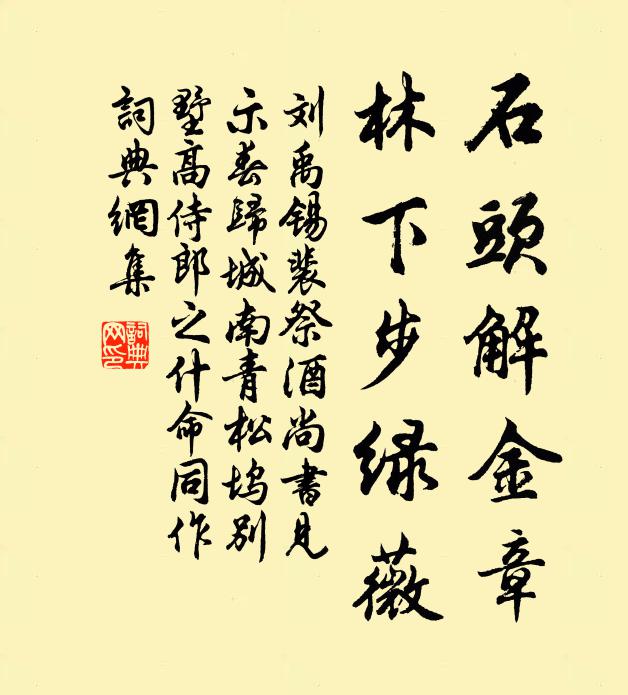 石頭解金章
林下步绿薇
刘禹锡裴祭酒尚書見
示春歸城南青松坞别
墅高侍郎之什命同作
詞典網集
詞典網印